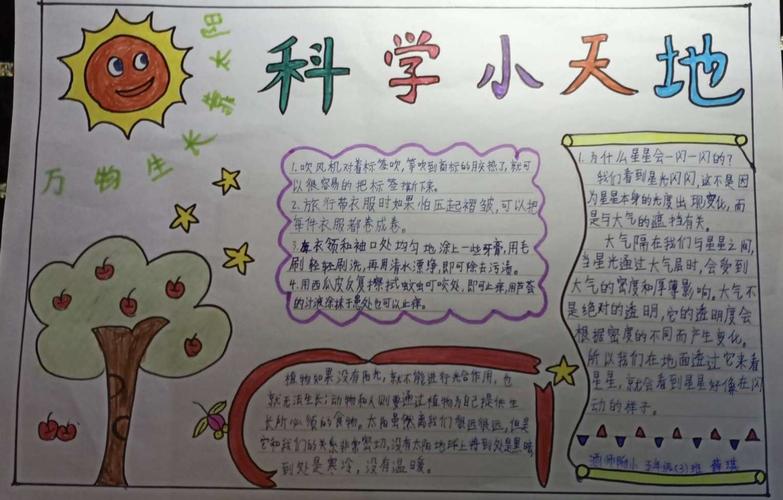 科学小天地
万物生长靠太阳
1.吹风机对着标签吹,等吹到商标的胶热了,就可
以很容易的把标签撕下来。
2.旅行带衣服时如果怕压起褶皱,可以把
每件衣服都卷成卷。
3.在衣领和袖口处均匀地涂上一些牙膏,用毛
刷轻轻刷洗,再用清水漂净,即可除去污渍。
4.用西瓜皮反复擦拭蚊虫叮咬处,即可止痒,用芦荟
的汁液涂抹于患处也可以止痒。
植物如果没有阳光,就不能进行光合作用,也
就无法生长;动物和人则要通过植物为自己提供生
长所必须的食物。太阳虽然离我们很远很远,但是
它和我们的关系非常密切,没有太阳地球上将到处是黑暗
到处是寒冷,没有温暖。
1.为什么星星会一闪一闪的?
我们看到星光闪闪,这不是因
为星星本身的光度出现变化,而
是与大气的遮挡有关。
大气隔在我们与星星之间,
当星光通过大气层时,会受到
大气的密度和厚薄影响。大气不
是绝对的透明,它的透明度会
根据密度的不同而产生变化。
所以我们在地面透过它来看
星星,就会看到星星好像在闪
动的样子。
师附小 年级(3)班